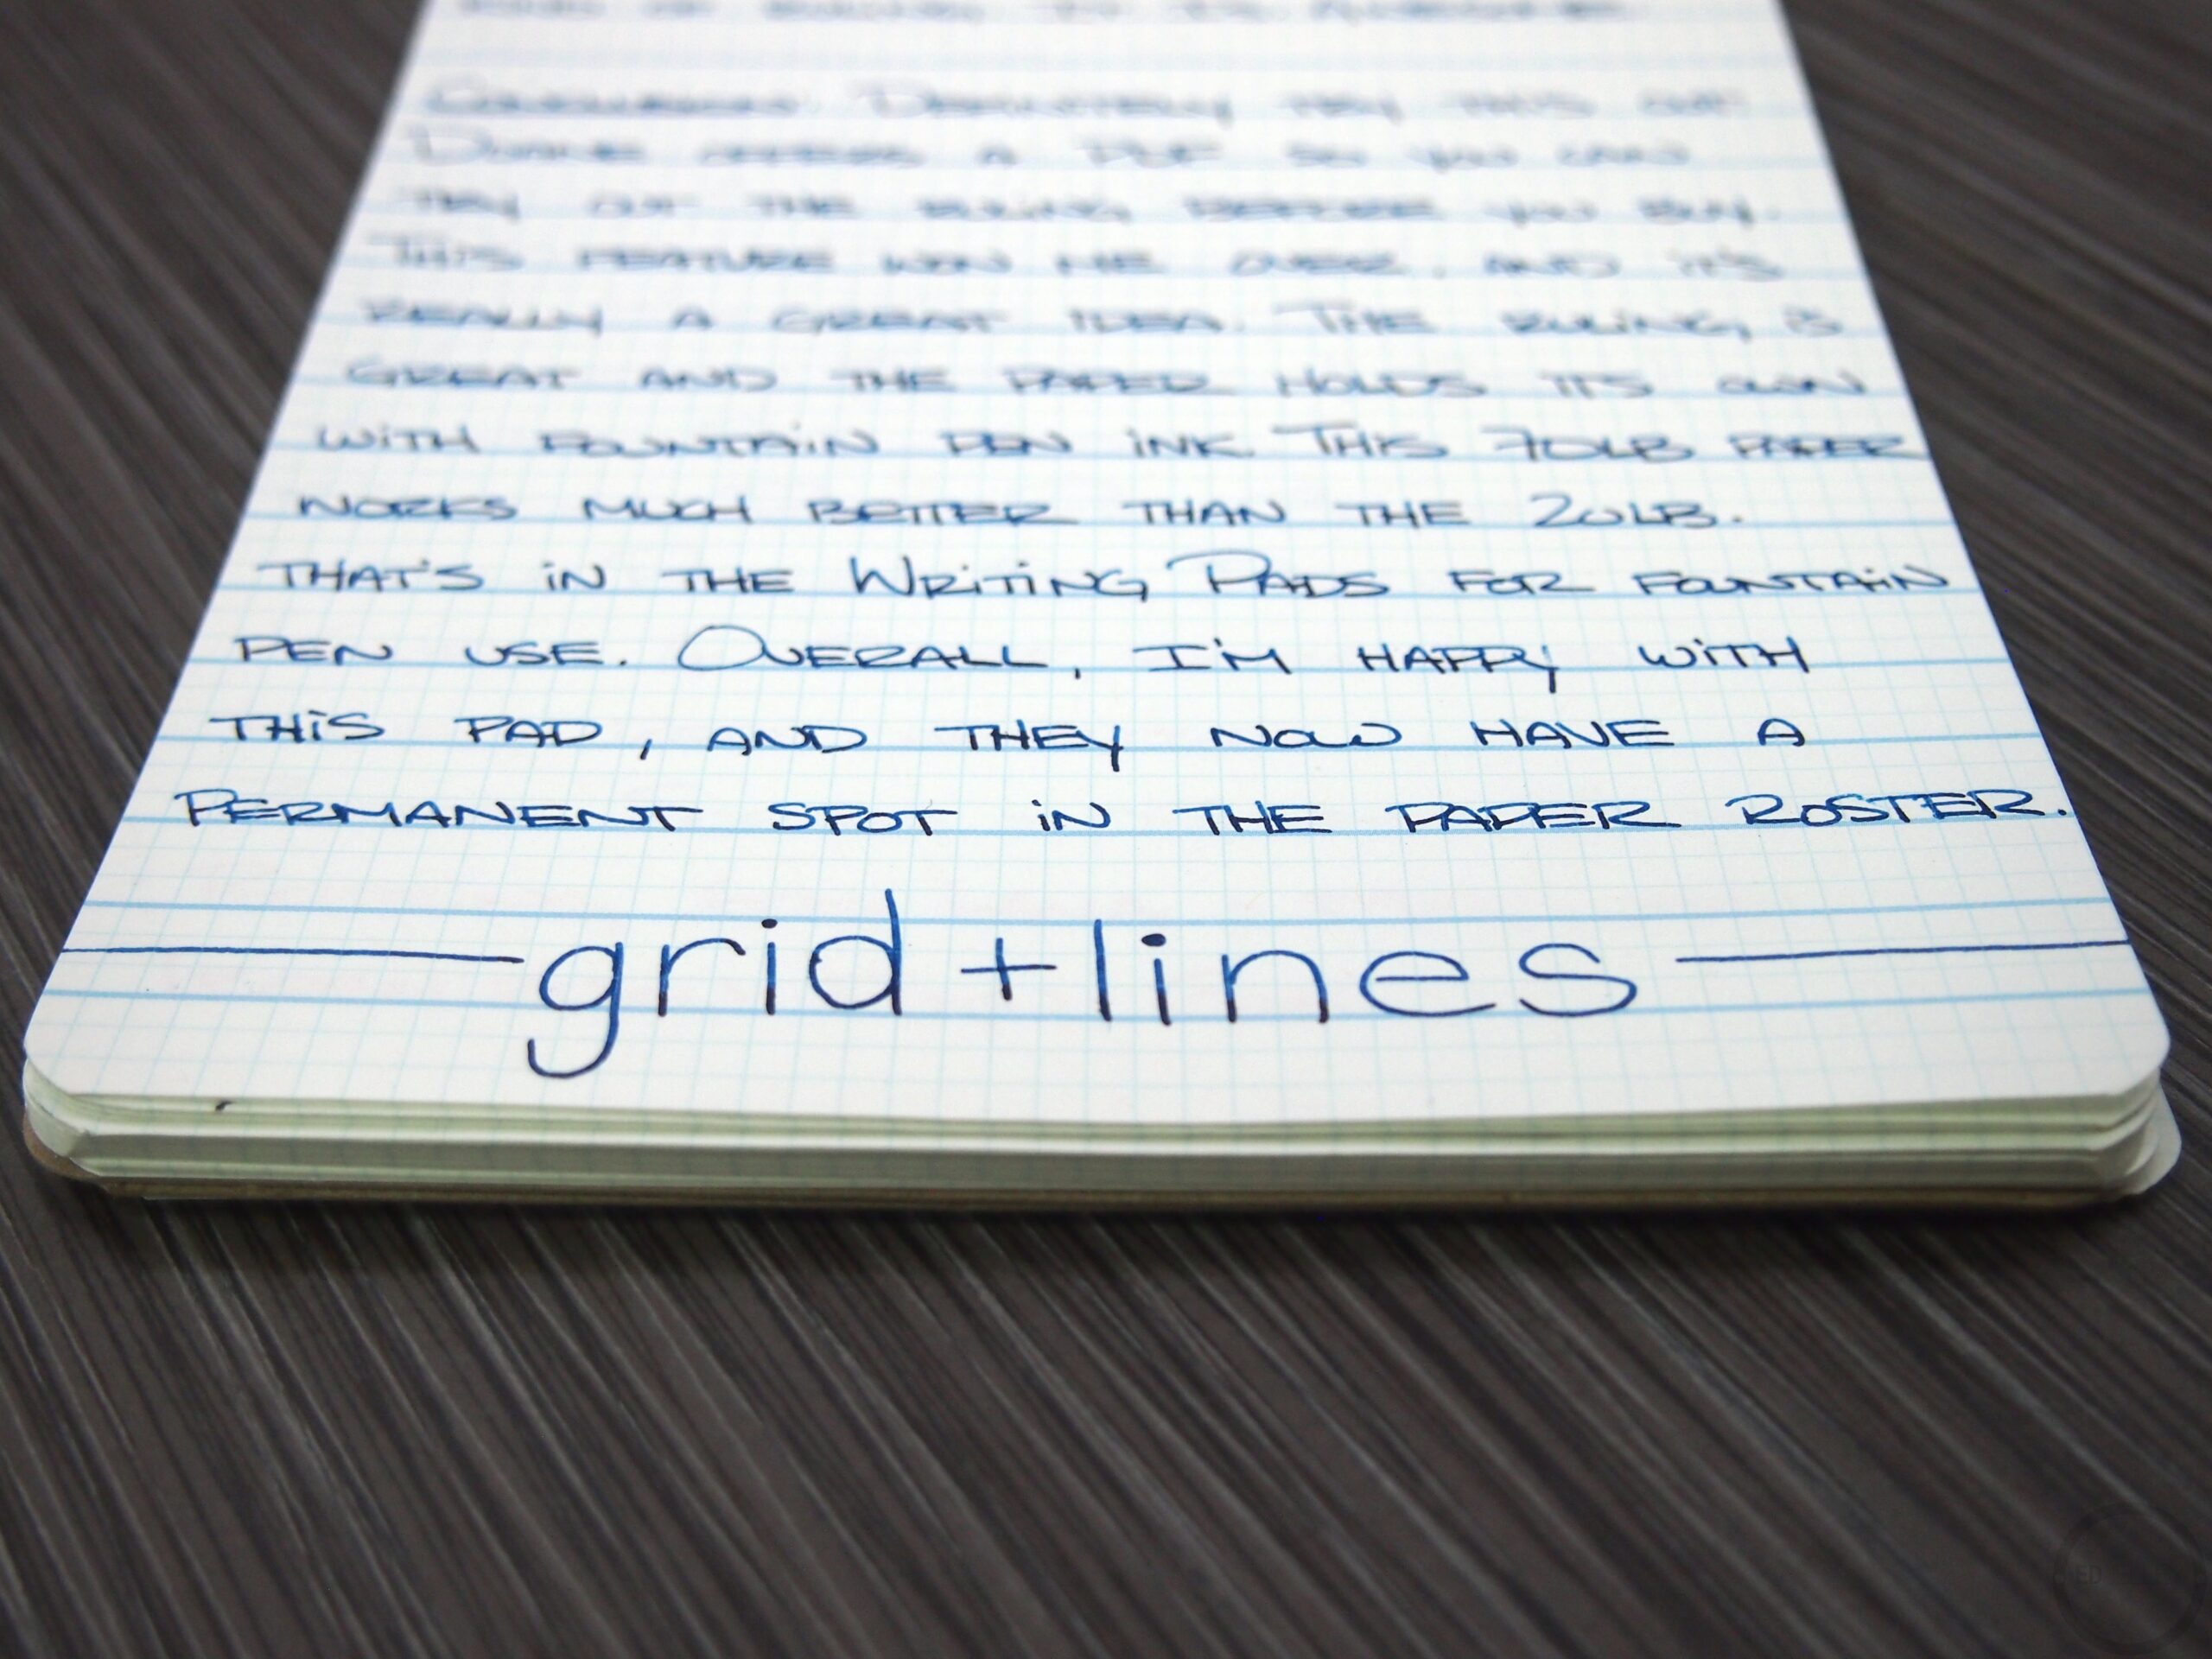 Conclusion: Definitely try this out
Doane offers a PDF so you can
TRY OUT THE RULING BEFORE YOU BUY.
THIS FEATURE WON ME OVER, AND IT'S
REALLY A GREAT IDEA. THE RULING IS
GREAT AND THE PAPER HOLDS ITS OWN
WITH FOUNTAIN PEN INK. THIS 70LB PAPER
WORKS MUCH BETTER THAN THE 20LB.
THAT'S IN THE WRITING PADS FOR FOUNTAIN
PEN USE. OVERALL, I'M HAPPY WITH
THIS PAD, AND THEY NOW HAVE A
PERMANENT SPOT IN THE PAPER ROSTER.
grid+lines
ED